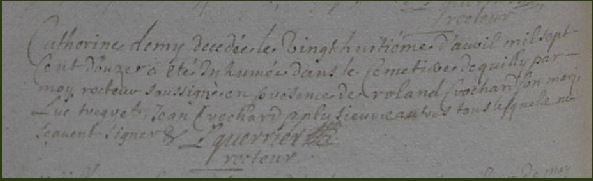 recteur
Catherine demy decedée le vingt huitième d'avril mil sept
cent douze a été Inhumée dans le semetiere de quilly par
moy recteur soussigné en presence de roland crochard son mary
Luc tucquet, Jean crochard & plusieurs autres tous lesquels ne
scavent signer &
Lguerrier
recteur